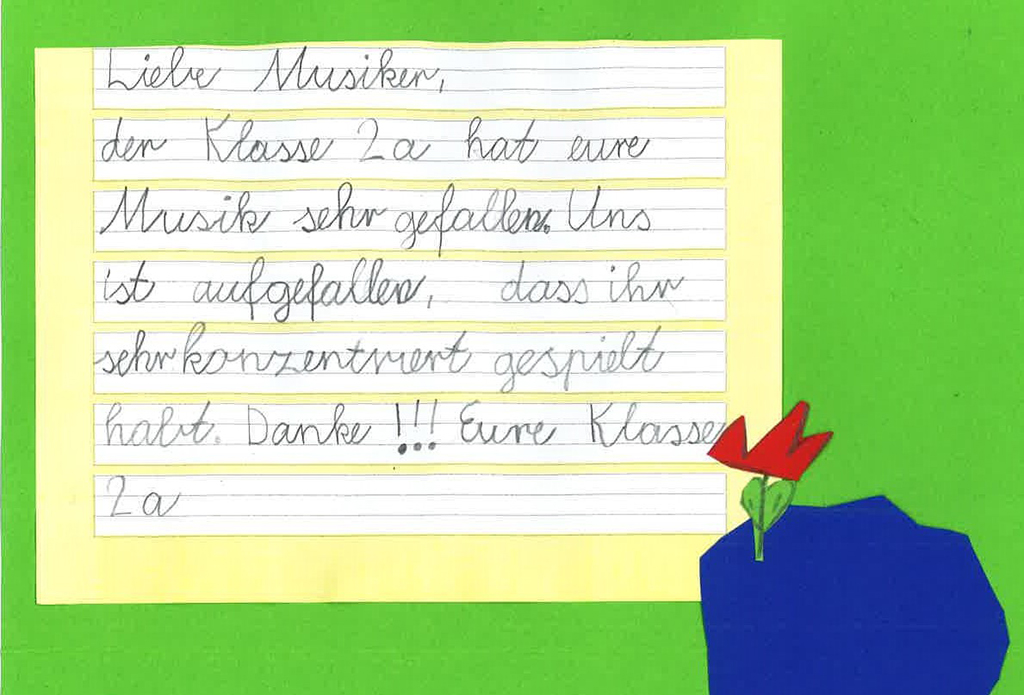 Liebe Musiker,
der Klasse 2a hat eure
Musik sehr gefallen. Uns
ist aufgefallen, dass ihr
sehr konzentriert gespielt
habt. Danke !!! Eure Klasse
2a